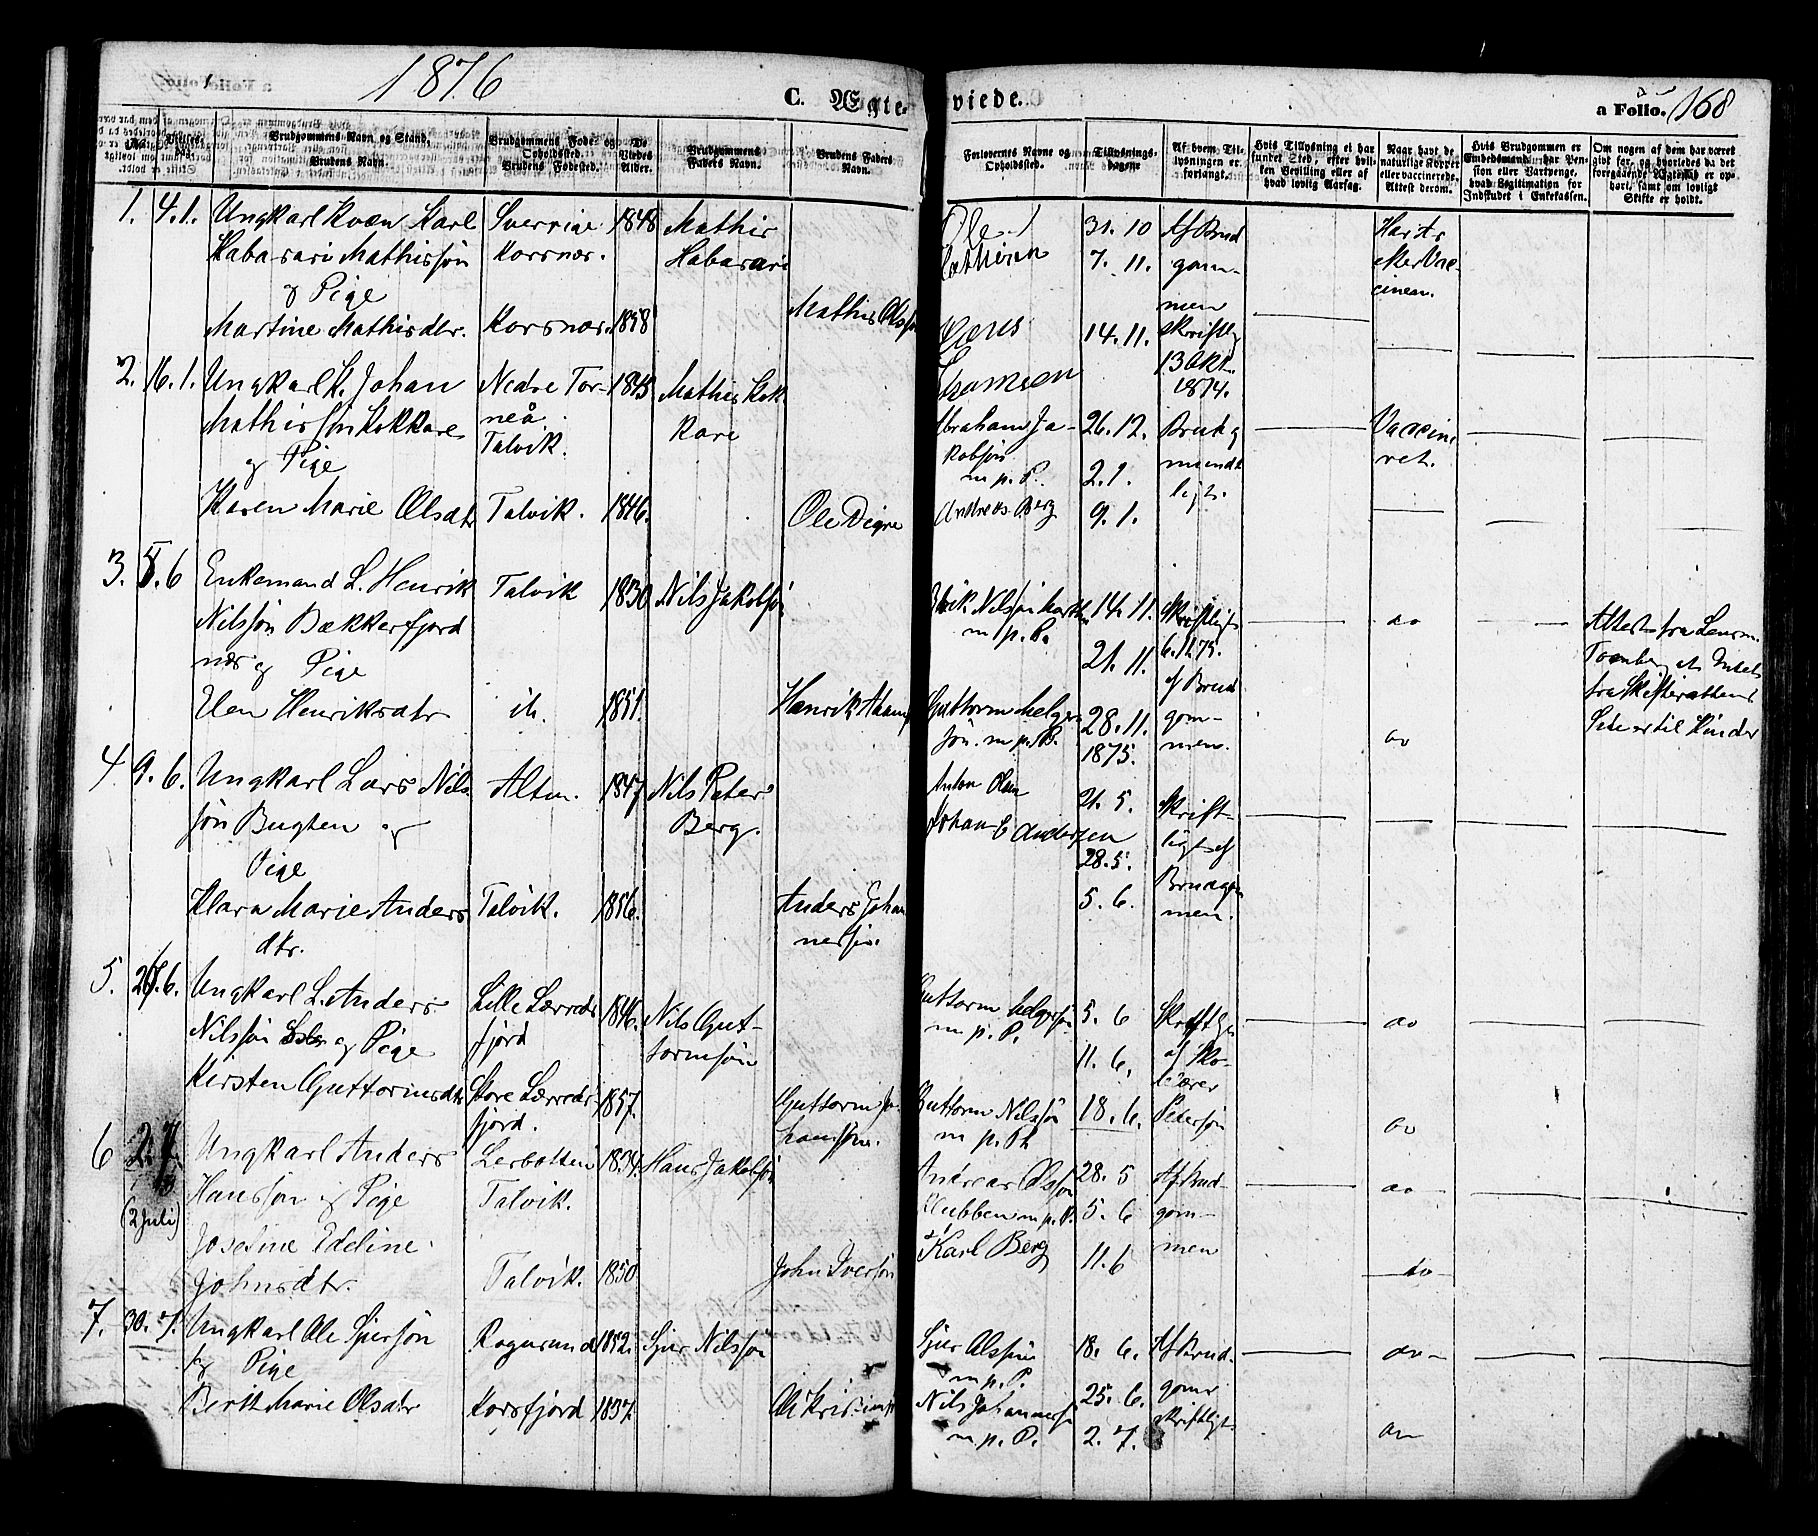 1876
C. Ægte-
viede.
a Folio. 168
Brudgommens Navn og Stand,
Brudens Navn.
Brudgommens Føde- og
Opholdssted.
Brudens Fødested.
De
Viedes
Alder.
Brudgommens
Faders Navn.
Brudens Faders
Navn.
Forlovernes Navne og
Opholdssted.
Tillysnings-
dagene
Af hvem Til-
lysningen er
forlangt.
Hvis Tillysning ei har
fundet Sted, efter hvil-
ken Bevilling eller af
hvad lovlig Aarsag.
Naar havt de
naturlige Kopper
eller vaccinerede,
Attest derom.
Hvis Brudgommen er
Embedsmand, har Pen-
sion eller Vartpenge,
hvad Legitimation for
Indskudet i Enkekassen.
Om nogen af dem har været
gift før, og hvorledes da det
foregaaende Ægteskab er op-
hørt, samt om lovligt
Skifte er holdt.
1. 4.1. Ungkarl Kvæn Karl
Habarari Mathissøn
og Pige
Martine Mathisdtr.
Sverrige
Korsnæs.
Korsnæs.
1848
1858
Mathis
Habarari
Mathis Olssøn
Ole
31. 10
7. 11.
14. 11.
Af Brud
gom-
men
skriftlig
13 Okt.
1874.
2. 16.1. Ungkarl K. Johan
Mathissøn Kokkare
og Pige
Karen Marie Olsdtr
Nedre Tor-
neå.
Talvik.
Talvik.
1845
1846.
Mathis Kok
kare
Ole Digre
Abraham Ja-
kobsøn
m. p. P.
Andreas Berg
26. 12.
2. 1.
9. 1.
mundt
ligt.
Vaccine
ret.
3. 5.6 Enkemand L. Henrik
Nilssøn Bækkerfjord
næs og Pige
Elen Henriksdtr
Talvik
1830
1851.
Nils Jakobsøn
m. p. P.
14. 11.
21. 11.
28. 11.
1875.
Skriftligt
6.11.75.
af Brud
gom-
men.
do
do
Attest fra Lensm.
4. 9. 6. Ungkarl Lars Nils
søn Bugten og
Pige
Klara Marie Anders
dtr.
Alten.
Talvik.
1847
1856.
Nils Peter
Berg.
Anders Johan
nessøn.
Anton Olsen
Johan E Andersen
21. 5.
28. 5.
5. 6.
Skrift-
ligt af
Brudgom
men.
5. Ungkarl L. Anders
Nilssøn og Pige
Kirsten Guttormsdtr
Lille Lærreds
fjord
Store Lærreds-
fjord.
1846.
1857.
Nils Gut-
tormsøn
Guttorm Jo
hanssøn.
Guttorm Helgesøn
m. p. P.
Guttorm Nilssøn
m. p. P.
5. 6
11. 6.
18. 6.
Skriftligt
af
Pedersøn
do
do
6 2.7
(2 Juli)
Ungkarl Anders
Hanssøn og Pige
Josefine Edeline
Johnsdtr.
Lerbotten
Talvik.
Talvik.
1854.
1850
Hans Jakobsøn
John Iversøn
Andreas Olssøn
Klubben m. p. P.
Karl Berg
28. 5
5. 6
11. 6
Af Brud-
gom-
men
do
do
7. 30. 7. Ungkarl Ole Sjursøn
og Pige
Berit Marie Olsdtr
Rognsund
Korsfjord
1852.
1857.
Sjur Nilssøn
Sjur Olssøn
m. p. P.
Nils Johannessøn
m. p. P.
18. 6.
25. 6.
2. 7.
Af Brud-
gom
skriftligt
do
do